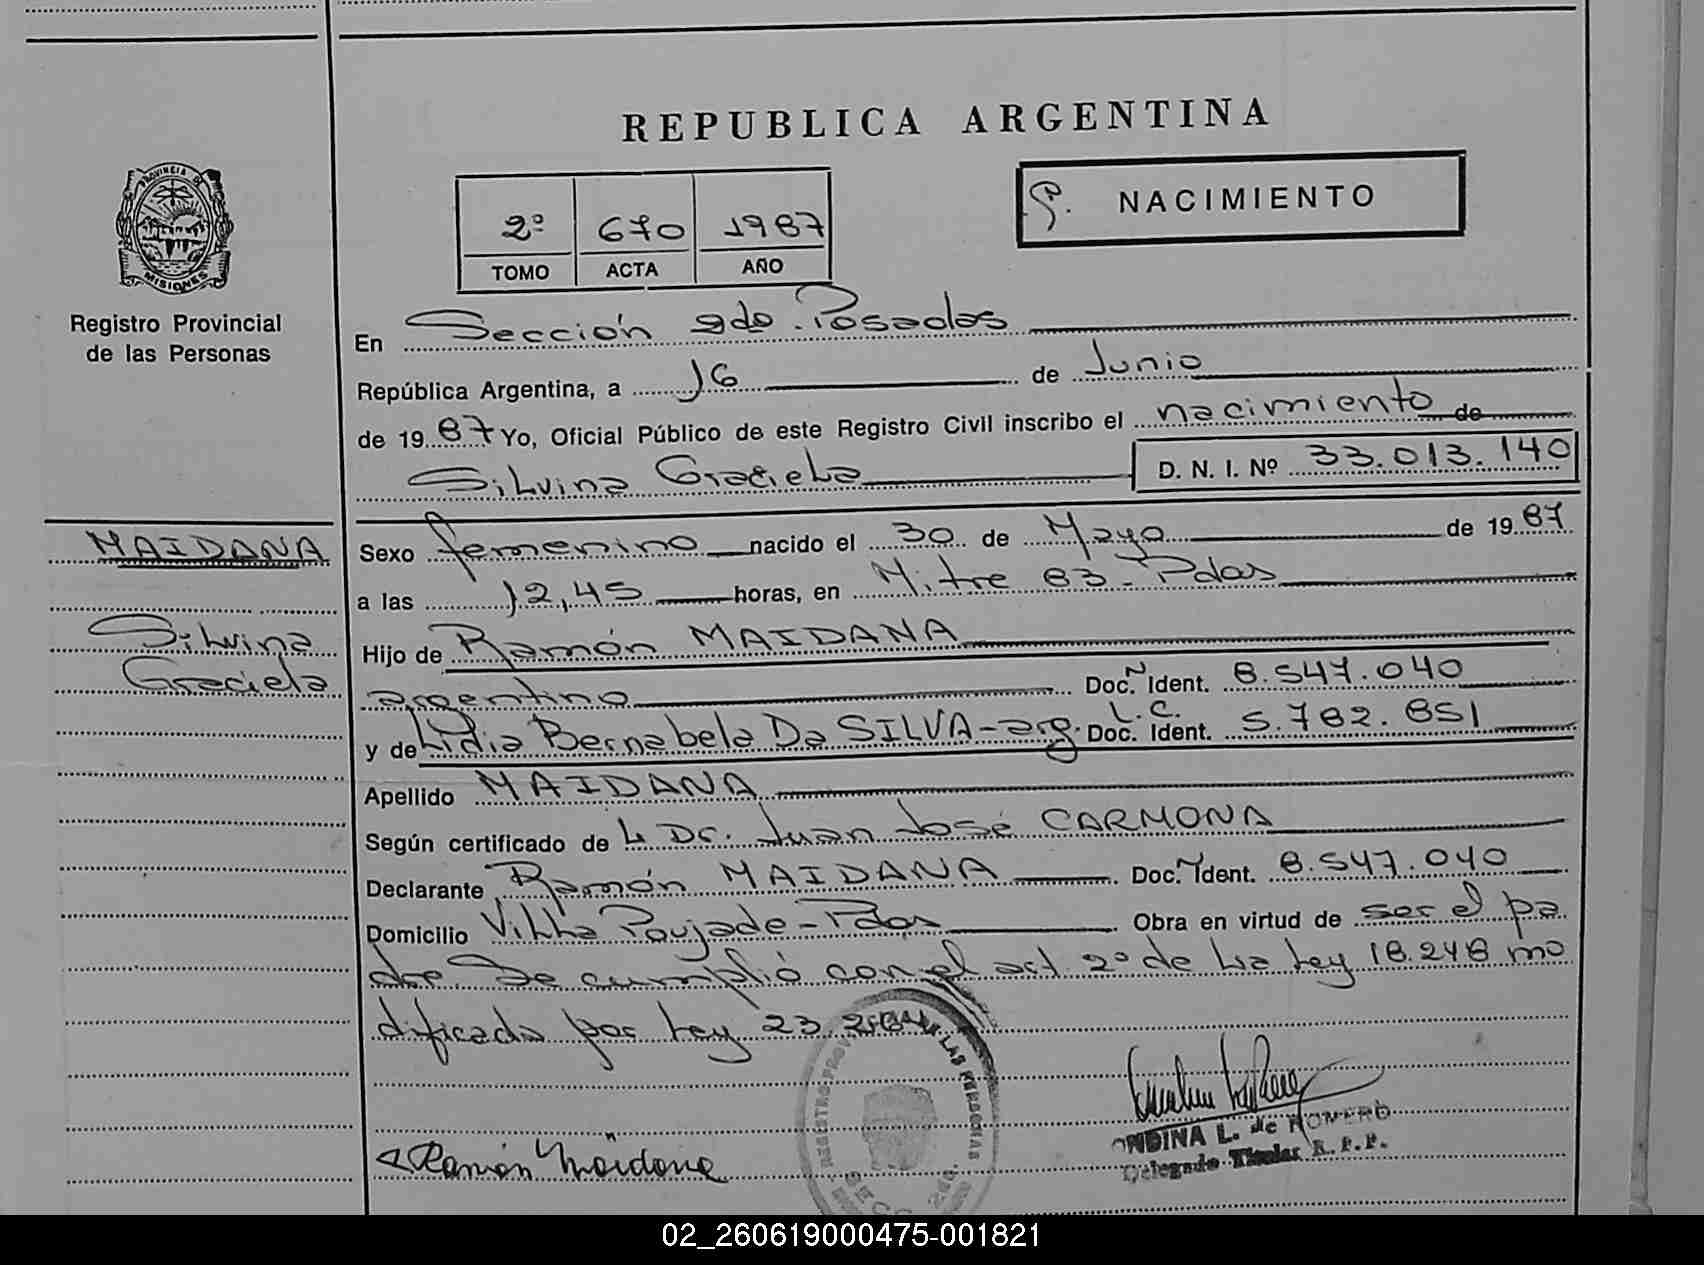 REPUBLICA ARGENTINA
PROVINCIA DE
MISIONES
Registro Provincial
de las Personas
2º 670 1987
TOMO ACTA AÑO
NACIMIENTO
En Sección 2da. Posadas
República Argentina, a 16 de Junio
de 1987 Yo, Oficial Público de este Registro Civil inscribo el nacimiento de
Silvina Graciela D. N. I. Nº 33.013.140
MAIDANA
Silvina
Graciela
Sexo femenino nacido el 30 de Mayo de 1987
a las 12,45 horas, en Mitre 83 - Pdas
Hijo de Ramón MAIDANA
argentino Doc. Ident. 8.547.040
y de Lidia Bernabela Da SILVA - arg. L.C. Doc. Ident. 5.782.851
Apellido MAIDANA
Según certificado de L Dr. Juan José CARMONA
Declarante Ramón MAIDANA Doc. Ident. 8.547.040
Domicilio Villa Poujade - Pdas Obra en virtud de ser el pa
dre. Se cumplió con el art. 2º de la Ley 18.248 mo
dificada por Ley 23.264
Ramón Maidana
ONDINA L. de ROMERO
Delegado Titular R.P.P.
02_260619000475-001821